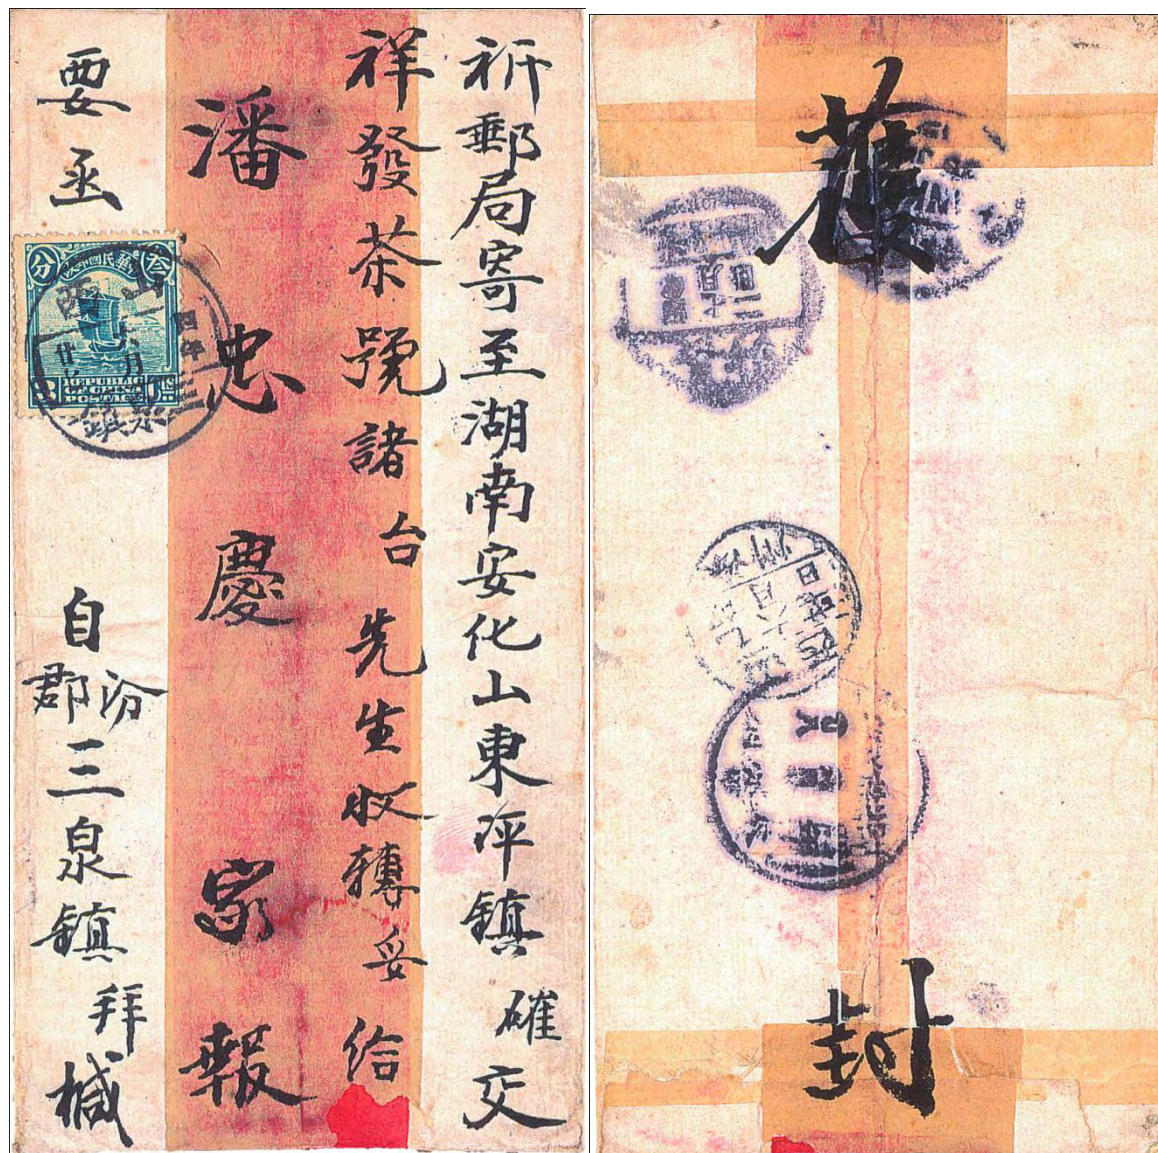 祈郵局寄至湖南安化山東坪鎮確交
祥發茶號諸台先生收轉妥給
潘忠慶家報
要函
自汾郡三泉鎮拜椷
中華民國郵政
叁
分
REPUBLIC
OF CHINA
POSTAGE
山西
四年
六月
廿
三泉
鎮
護
封